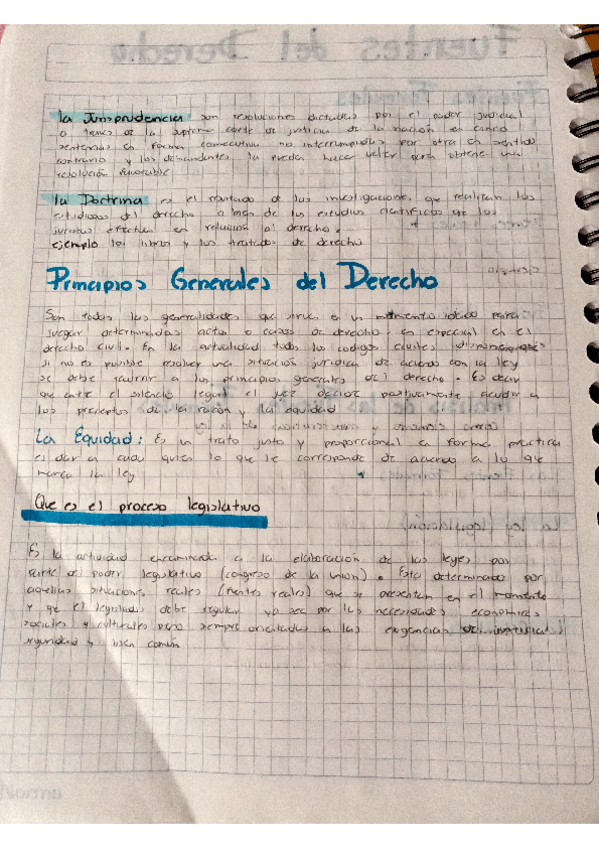 La Jurisprudencia son resoluciones dictadas por el poder judicial
o tesis de la suprema corte de justicia de la nación en cinco
sentencias en forma consecutiva no interrumpidas por otra en sentido
contrario y los demandantes la puedan hacer valer para obtener una
resolución favorable
La Doctrina es el resultado de las investigaciones que realizan los
estudiosos del derecho o mas de los estudios cientificos que los
juristas efectúan en relación al derecho.
ejemplo los libros y los tratados de derecho
Principios Generales del Derecho
Son todas las generalidades que sirven en un momento idóneo para
juzgar determinados actos o casos de derecho, en especial en el
derecho civil. En la actualidad todos los codigos civiles
si no es posible resolver una situación jurídica de acuerdo con la ley
se debe recurrir a los principios generales del derecho. Es decir
que ante el silencio legal el juez decide positivamente acudir a
los preceptos de la razón y la equidad
La Equidad: Es un trato justo y proporcional en forma practica
es dar a cada quien lo que le corresponde de acuerdo a lo que
marca la ley
Que es el proceso legislativo
Es la actividad encaminada a la elaboración de las leyes por
parte del poder legislativo (congreso de la union). Esta determinado por
aquellas situaciones reales (fuentes reales) que se presentan en el momento
y que el legislador debe regular ya sea por las necesidades economicas
sociales y culturales pero siempre orientadas a las exigencias de
seguridad y bien común